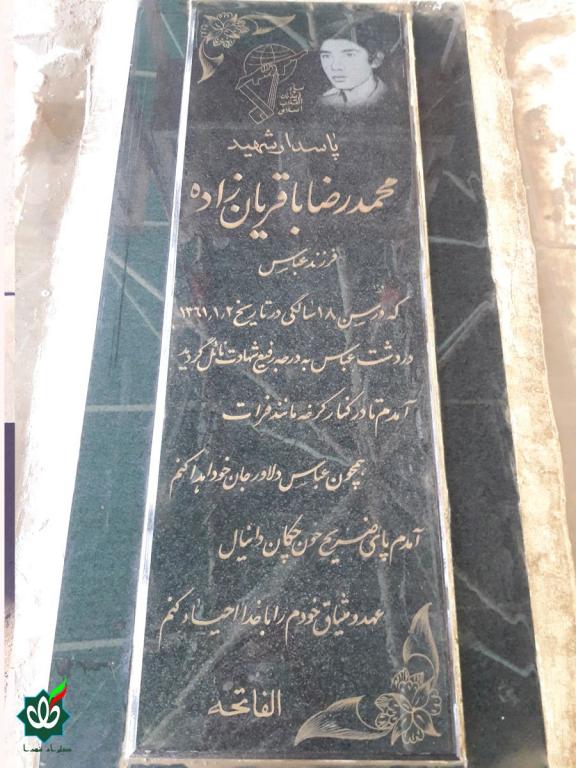 سپاه
پاسداران
انقلاب
اسلامی
پاسدار شهید
محمدرضا باقریان زاده
فرزند عباس
که در سن ۱۸ سالگی در تاریخ ۱۳۶۱.۱.۲
در دشت عباس به درجه رفیع شهادت نائل گردید
آمدم تا در کنار کرخه مانند فرات
همچون عباس دلاور جان خود اهدا کنم
آمدم پای ضریح خون چکان دانیال
عهد و میثاق خودم را با خدا احیاء کنم
الفاتحه